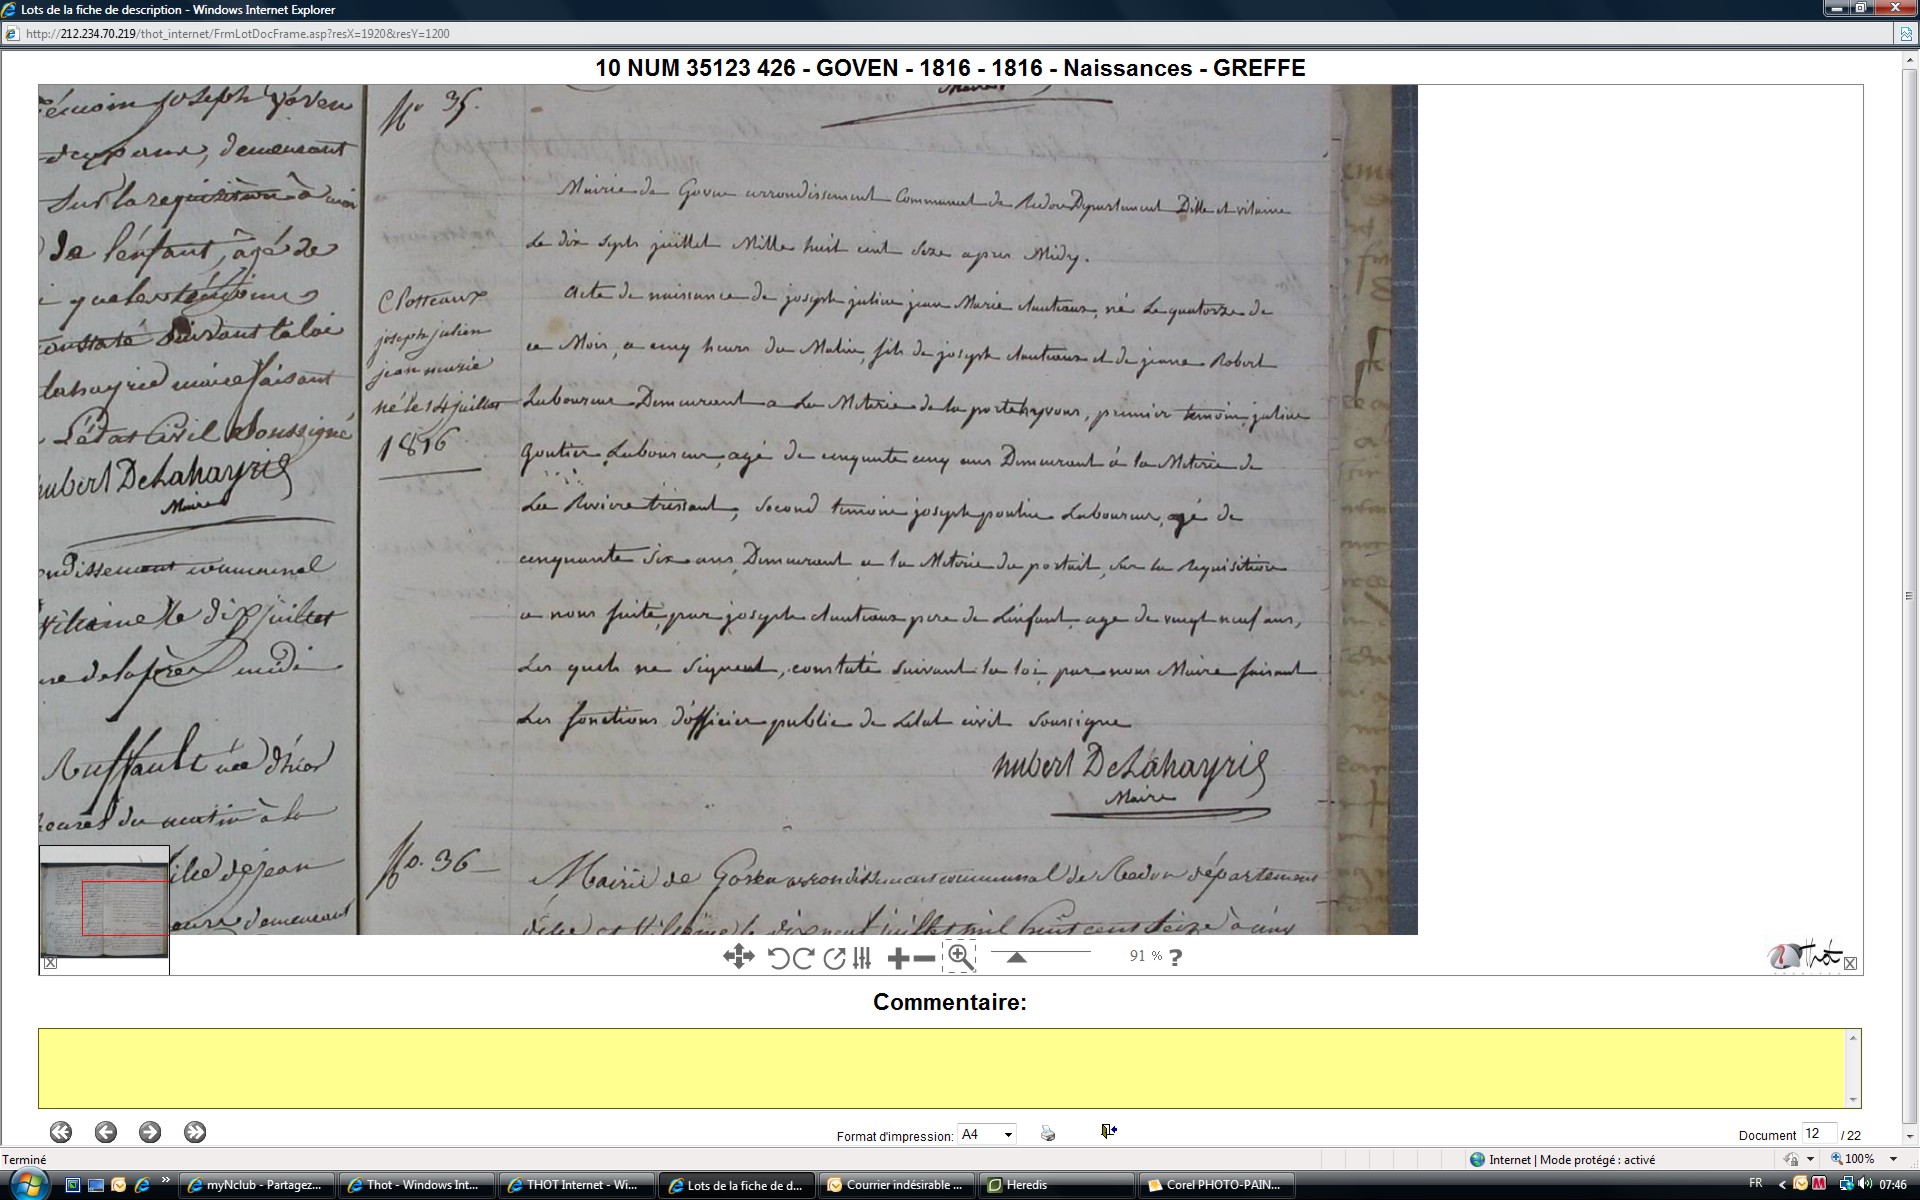 Lots de la fiche de description - Windows Internet Explorer
http://212.234.70.219/thot_internet/FrmLotDocFrame.asp?resX=1920&resY=1200
10 NUM 35123 426 - GOVEN - 1816 - 1816 - Naissances - GREFFE
témoin joseph
demeurant
Sur la requisition à moi
De l'enfant, âgé de
constaté Suivant la loi
Lahayrie maire faisant
L'état Civil Soussigné
hubert DeLahayrie
Maire
communal
vilaine le dix juillet
midi
Ruffault née d'hier
heures du matin à la
fille de jean
demeurant
No 35.
Mairie de Goven arrondissement Communal de Redon Departement Dille et vilaine
Le dix Sept juillet Mille huit cent Seze apres Midy.
Clotteaux
joseph julien
jean marie
né le 14 juillet
1816
Acte de naissance de joseph julien jean Marie clauteaux, né Le quatorze de
ce Mois, a cinq heurs du Matin, fils de joseph clauteaux et de jeanne Robert
Laboureur Demeurant a La Meterie de la porte, premier temoin julien
Goutier, Laboureur, agé de cinquante cinq ans Demeurant á la Meterie de
La Riviere, Second temoin joseph Laboureur, agé de
cinquante Six ans, Demeurant a la Meterie du portail, Sur la Requisition
a nous faite, par joseph clauteaux pere de Linfant, age de vingt neuf ans,
Les quels ne Signent, constaté Suivant la loi, par nous Maire faisant
Les fonctions d'officier public de Letat civil Soussigne
hubert DeLahayrie
Maire
No. 36
Mairie de Goven arrondissement communal de Redon département
d'ille et Vilaine le dix neuf juillet mil huit cent Seize à cinq
91 %
?
Thot
Commentaire:
Format d'impression: A4
Document 12 / 22
Terminé
Internet | Mode protégé : activé
100%
myNclub - Partagez...
Thot - Windows Int...
THOT Internet - Wi...
Lots de la fiche de d...
Courrier indésirable ...
Heredis
Corel PHOTO-PAIN...
FR
07:46